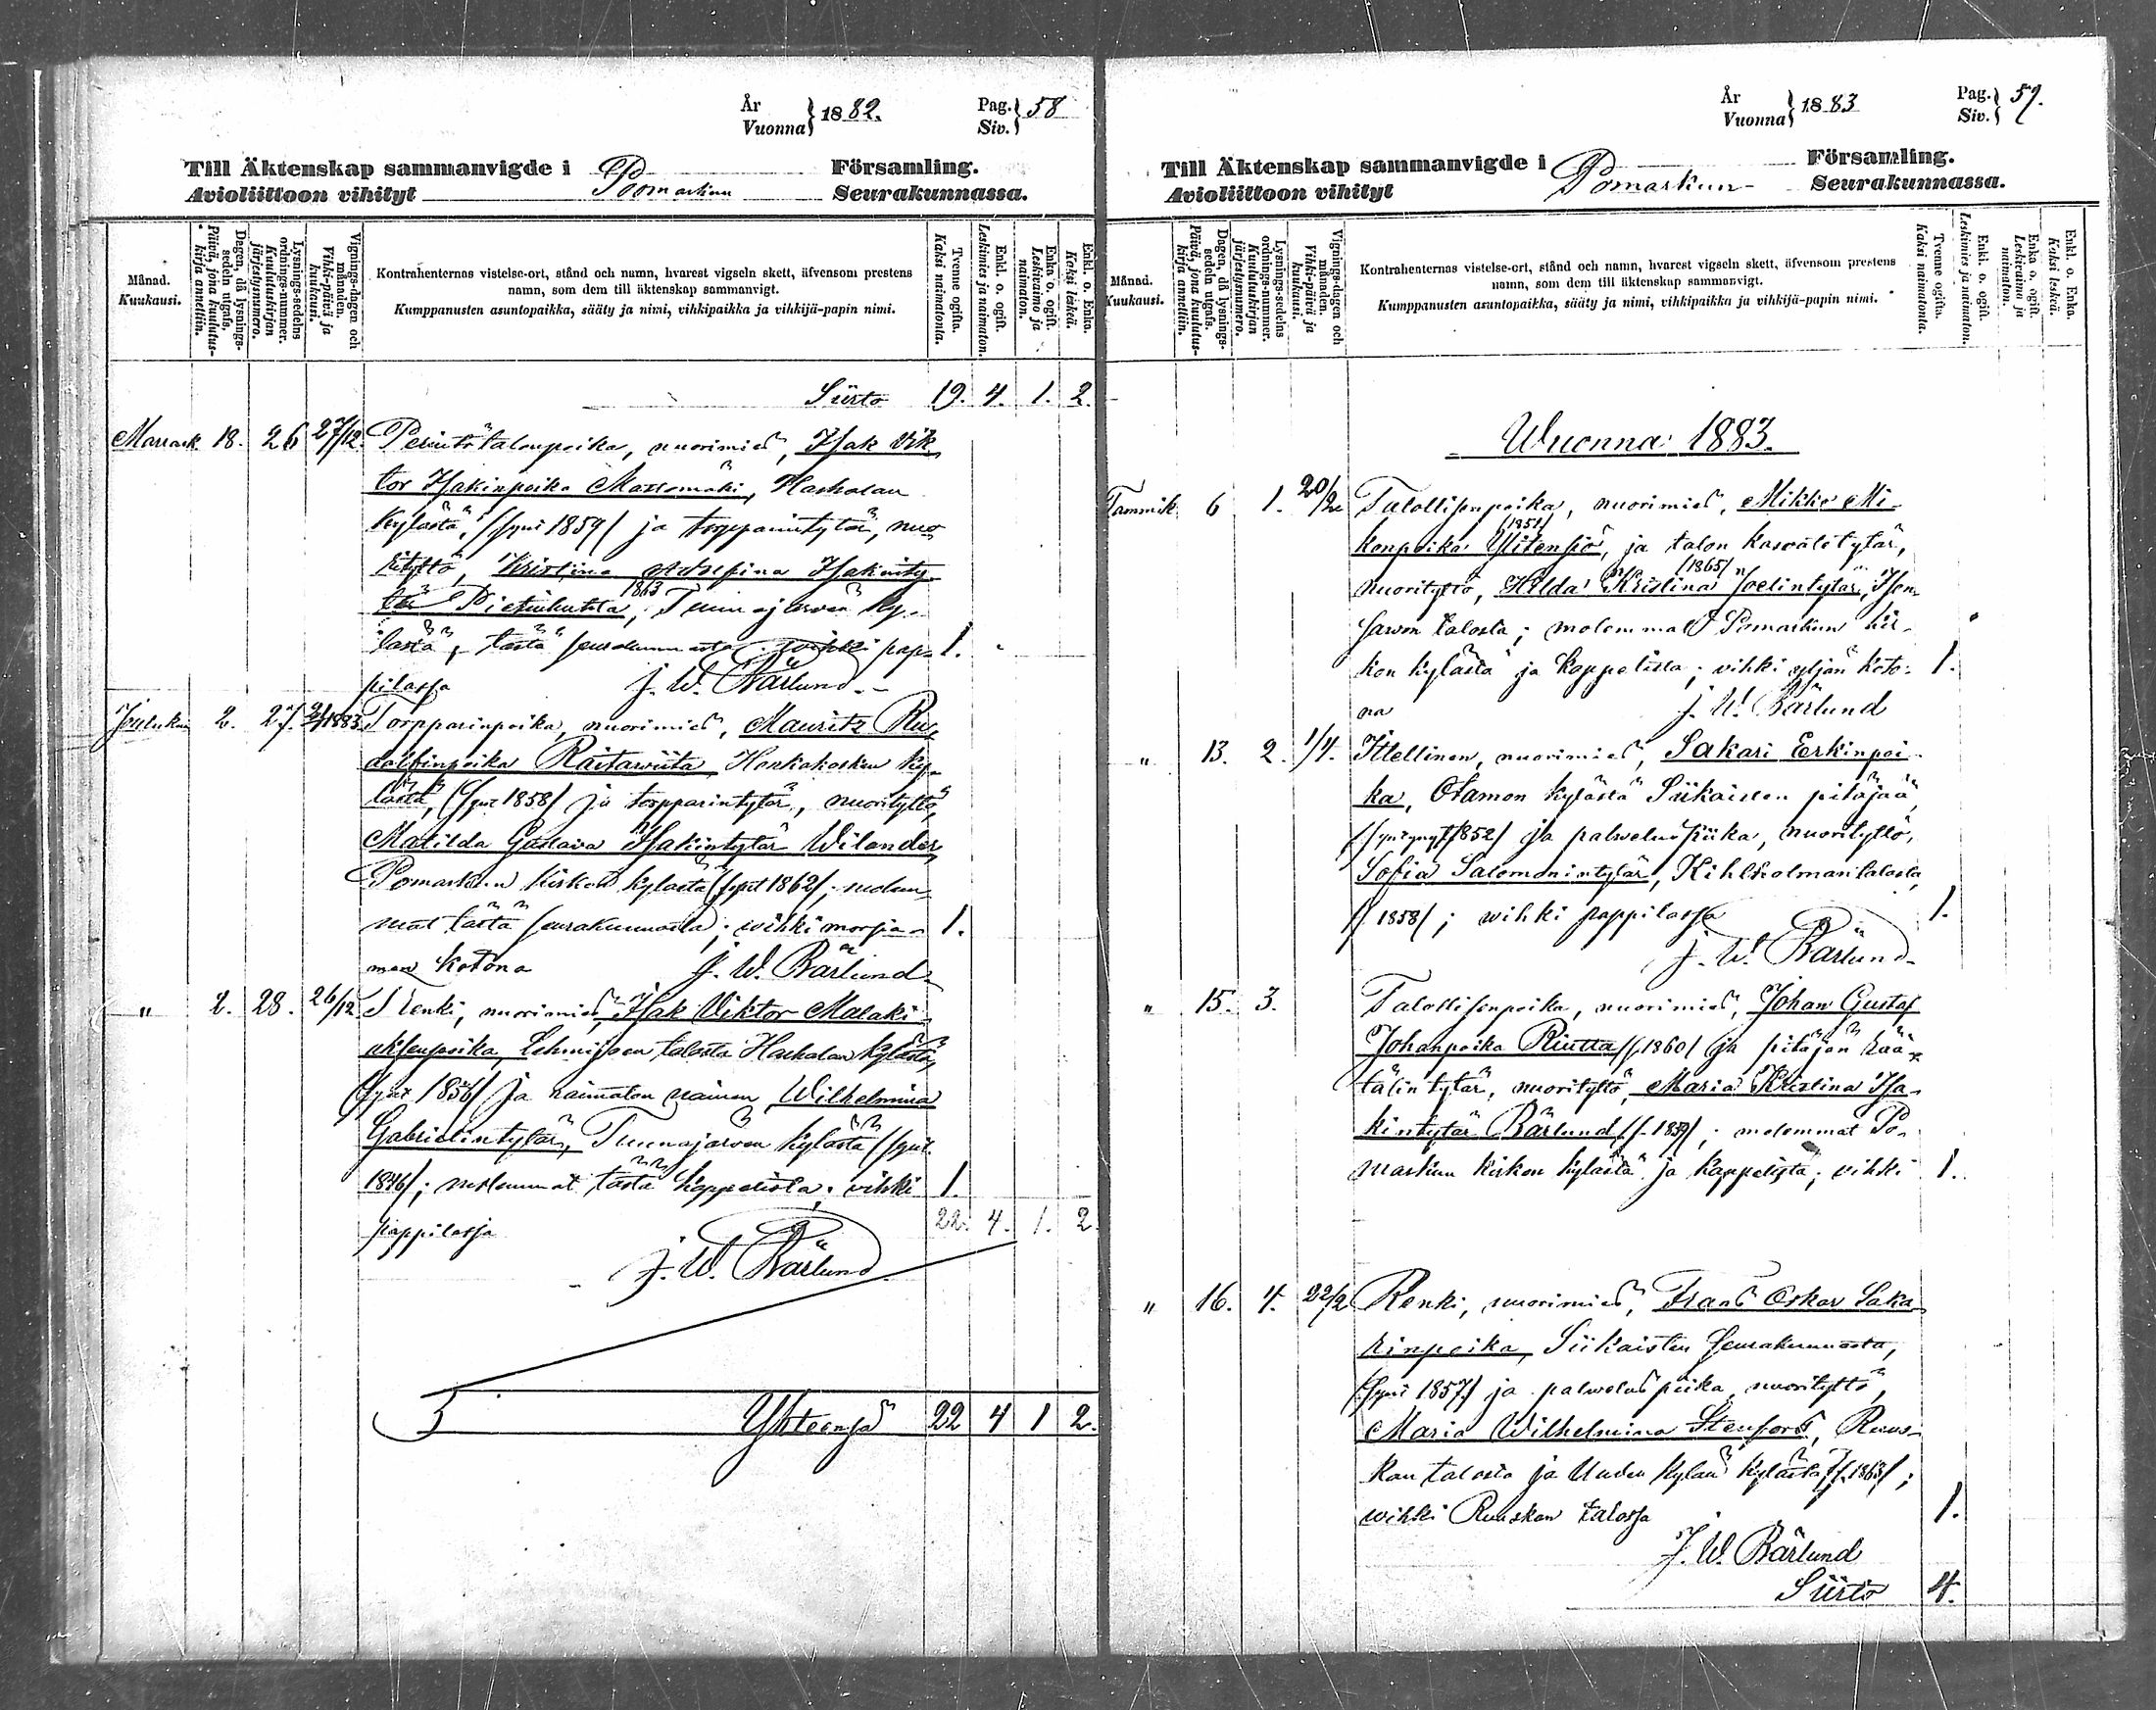 År
Vuonna } 1882.
Pag.
Siv. } 58
Till Äktenskap sammanvigde i Pomarkun Församling.
Avioliittoon vihityt Seurakunnassa.
Månad.
Kuukausi.
Dagen, då lysnings-sedeln utgafs.
Päivä, jona kuulutus-kirja annettiin.
Lysnings-sedelns ordnings-nummer.
Kuulutuskirjan järjestysnumero.
Vignings-dagen och månaden.
Vihki-päivä ja kuukausi.
Kontrahenternas vistelse-ort, stånd och namn, hvarest vigseln skett, äfvensom prestens
namn, som dem till äktenskap sammanvigt.
Kumppanusten asuntopaikka, sääty ja nimi, vihkipaikka ja vihkijä-papin nimi.
Tvenne ogifta.
Kaksi naimatonta.
Enkl. o. ogift.
Leskimies ja naimaton.
Enka o. ogift.
Leskivaimo ja naimaton.
Enkl. o. Enka.
Kaksi leskeä.
Siirto 19. 4. 1. 2.
Marrask. 18. 26 27/12. Perintötalonpoika, nuorimies, Isak Vik
tor Isakinpoika Massamäki, Harhalan
kylästä, (synt 1859) ja torpparintytär, nuo
rityttö, Kristina Josefina Isakinty
tär 1863
Tuunajärven ky-
lästä, tästä seurakunnasta. vihki pap- 1.
pilassa J. W. Bärlund.
Jouluku 2. 27. 2/1 1883. Torpparinpoika, nuorimies, Mauritz Ru-
dolfinpoika Raitawiita, Honkakosken ky-
lästä, (synt 1858) ja torpparintytär, nuorityttö,
Matilda Gustava Isakintytär Wilander,
Pomarkun kirkon kylästä (synt 1862); molem-
mat tästä seurakunnasta; wihki morsia- 1.
men kotona J. W. Bärlund.
" 2. 28. 26/12 Renki, nuorimies, Isak Viktor Malaki-
aksenpoika, Lehmijoen talosta Harhalan kylästä,
(synt 1856) ja naimaton nainen, Wilhelmina
Gabrielintytär, Tuunajärven kylästä (synt.
1846); molemmat tästä kappelista; vihki 1.
pappilassa 22. 4. 1. 2.
J. W. Bärlund
Yhteensä 22 4 1 2.
År
Vuonna } 1883
Pag.
Siv. } 59.
Till Äktenskap sammanvigde i Pomarkun Församling.
Avioliittoon vihityt Seurakunnassa.
Månad.
Kuukausi.
Dagen, då lysnings-sedeln utgafs.
Päivä, jona kuulutus-kirja annettiin.
Lysnings-sedelns ordnings-nummer.
Kuulutuskirjan järjestysnumero.
Vignings-dagen och månaden.
Vihki-päivä ja kuukausi.
Kontrahenternas vistelse-ort, stånd och namn, hvarest vigseln skett, äfvensom prestens
namn, som dem till äktenskap sammanvigt.
Kumppanusten asuntopaikka, sääty ja nimi, vihkipaikka ja vihkijä-papin nimi.
Tvenne ogifta.
Kaksi naimatonta.
Enkl. o. ogift.
Leskimies ja naimaton.
Enka o. ogift.
Leskivaimo ja naimaton.
Enkl. o. Enka.
Kaksi leskeä.
Wuonna 1883.
Tammik. 6 1. 20/2 Talollisenpoika, nuorimies, Mikko Mi-
konpoika Ylitensiö, ja talon kasvatitytär,
(1865)
nuorityttö, Hilda Kristina Joelintytär, Isen
sawon talosta; molemmat Pomarkun kir-
kon kylästä ja kappelista; vihki yljän koto- 1.
na J. W. Bärlund
" 13. 2. 1/4. Itsellinen, nuorimies, Sakari Erkinpoi-
ka, Otamon kylästä Siikaisten pitäjää,
1852) ja palweluspiika, nuorityttö,
Sofia Salomonintytär, Kihlholman talosta,
(s. 1858); wihki pappilassa 1.
J. W. Bärlund.
" 15. 3. Talollisenpoika, nuorimies, Johan Gustaf
Johanpoika Riutta (s. 1860) ja pitäjän rää-
tälin tytär, nuorityttö, Maria Kristina Isa-
kintytär Bärlund, (s. 1859); molemmat Po-
markun kirkon kylästä ja kappelista; vihki 1.
" 16. 4. 22/2 Renki, nuorimies, Frans Oskar Saka-
rinpoika, Siikaisten seurakunnasta,
(synt 1857) ja palweluspiika, nuorityttö,
Maria Wilhelmina Stenfors, Ruus-
kan talosta ja Uuden kylän kylästä (s. 1863);
wihki Ruuskan talossa 1.
J. W. Bärlund
Siirto 4.